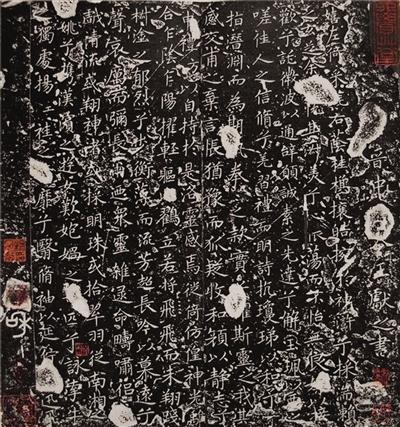 晉中獻之書
嬉左倚采右蔭桂旗攘皓腕於神滸兮採湍瀨
之淑美兮心振蕩而不怡無良接
歡兮託微波以通辭願誠素之先達兮解玉珮而
嗟佳人之信脩兮羌習禮而明詩抗瓊珶以和予兮
指潛淵而為期執拳之款實兮懼斯靈之我欺
感交甫之棄言悵猶豫而狐疑收和顏以靜志兮
申禮防以自持於是洛靈感焉徙倚傍偟神光離
合乍陰乍陽擢輕軀以鶴立若將飛而未翔踐
椒塗之郁烈兮步衡薄而流芳超長吟以慕遠兮
聲哀厲而彌長爾乃衆靈雜遝命疇嘯侶或
戲清流或翔神渚或採明珠或拾翠羽從南湘之二
姚兮攜漢濱之遊女歎媧之無匹兮詠牽牛
之獨處揚袿之靡兮翳脩袖以延迅飛